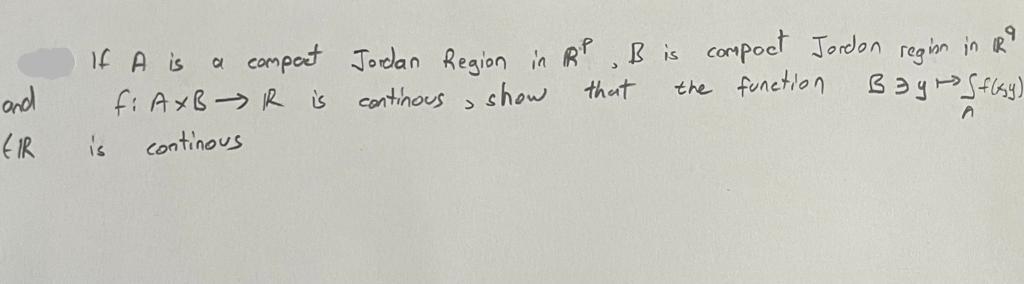 If A is a compact Jordan Region in ℝᵖ, B is compoct Jordon region in ℝ^q
and f: A×B → ℝ is continous, show that the function B ∋ y ↦ ∫_A f(x,y)
∈ ℝ is continous